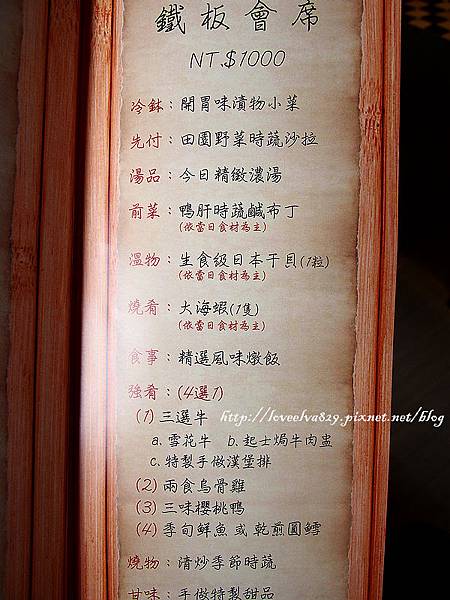 鐵板會席
NT.$1000
冷缽：開胃味漬物小菜
先付：田園野菜時蔬沙拉
湯品：今日精緻濃湯
前菜：鴨肝時蔬鹹布丁
(依當日食材為主)
溫物：生食級日本干貝(1粒)
(依當日食材為主)
燒肴：大海蝦(1隻)
(依當日食材為主)
食事：精選風味燉飯
強肴：(4選1)
(1) 三選牛
http://loveelva829.pixnet.net/blog
a.雪花牛 b.起士焗牛肉盅
c.特製手做漢堡排
(2) 兩食烏骨雞
(3) 三味櫻桃鴨
(4) 季旬鮮魚 或 乾煎圓鱈
燒物：清炒季節時蔬
甘味：手做特製甜品